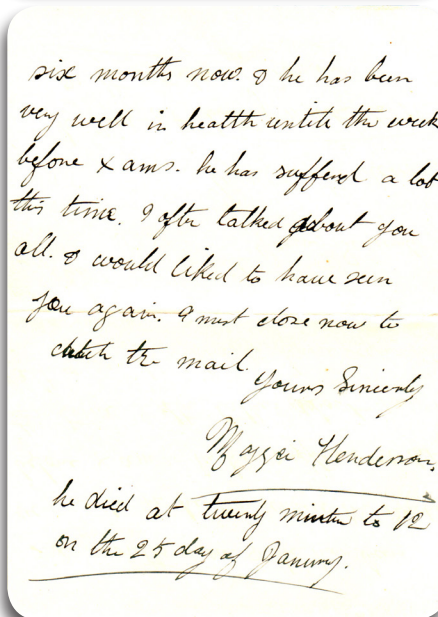 six months now. & he has been
very well in health untill the week
before Xams. he has sufferd a lot
this time. I ofte talked about you
all. & would liked to have seen
you again. I must close now to
catch the mail.
Yours Sincerely
Maggie Henderson,
he died at twenty minten to 12
on the 25 day of January.